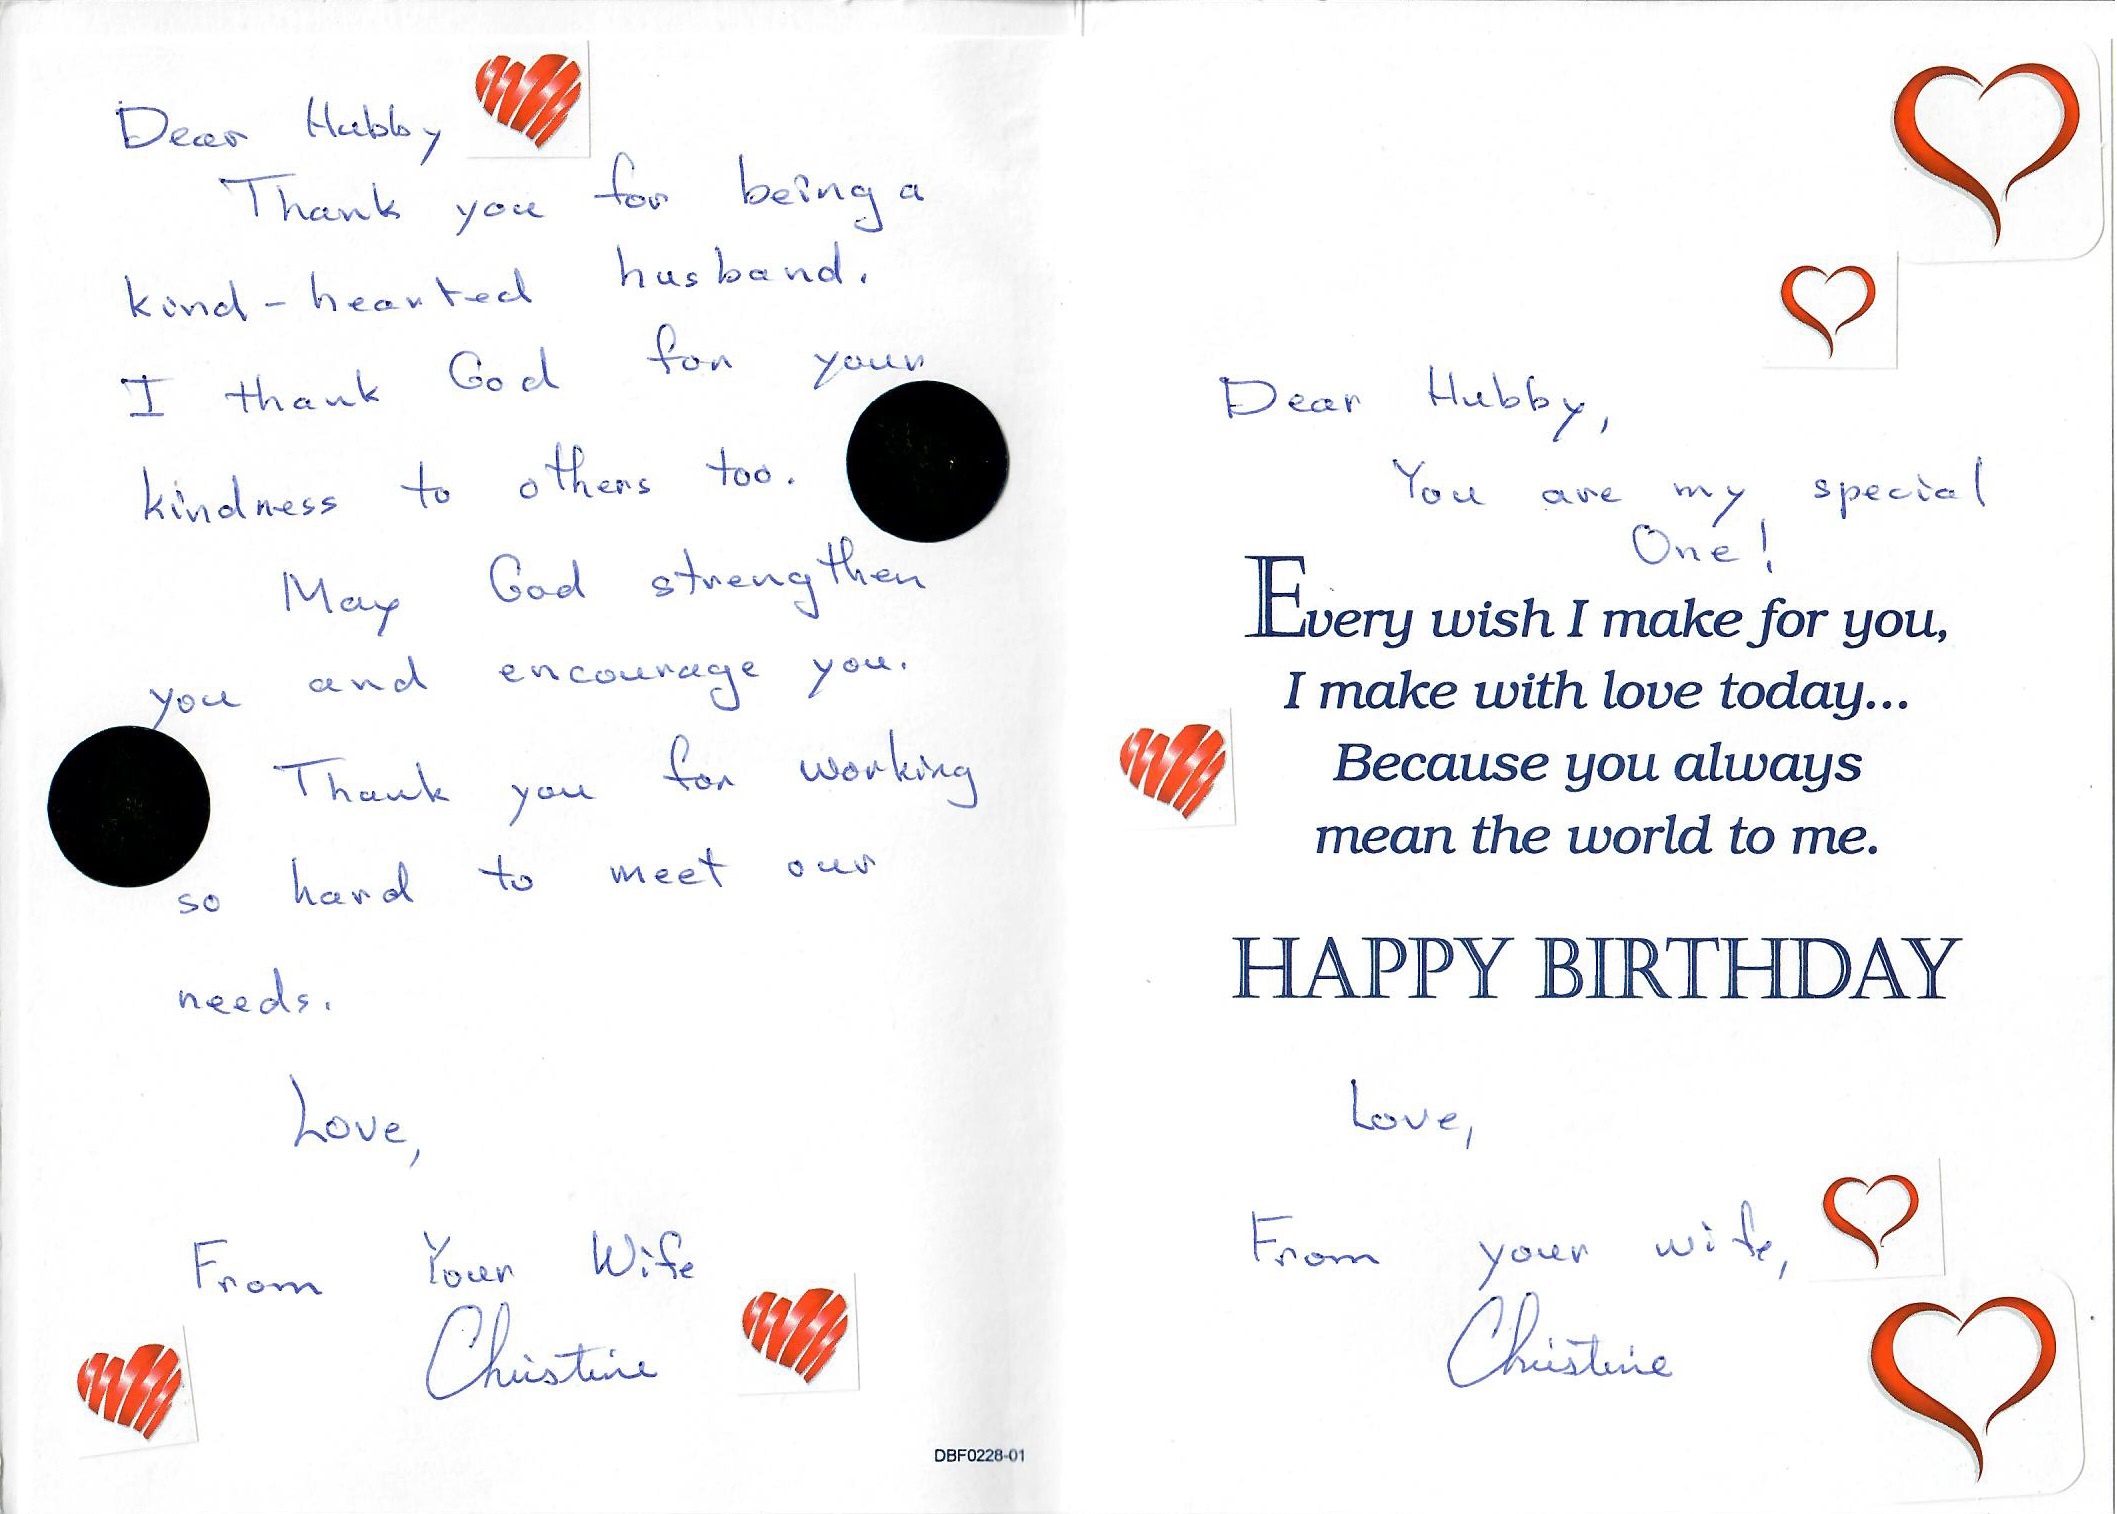 Dear Hubby
Thank you for being a
kind-hearted husband.
I thank God for your
kindness to others too.
May God strengthen
you and encourage you.
Thank you for working
so hard to meet our
needs.
Love,
From Your Wife
Christine
DBF0228-01
Dear Hubby,
You are my special
One!
Every wish I make for you,
I make with love today...
Because you always
mean the world to me.
HAPPY BIRTHDAY
Love,
From your wife,
Christine